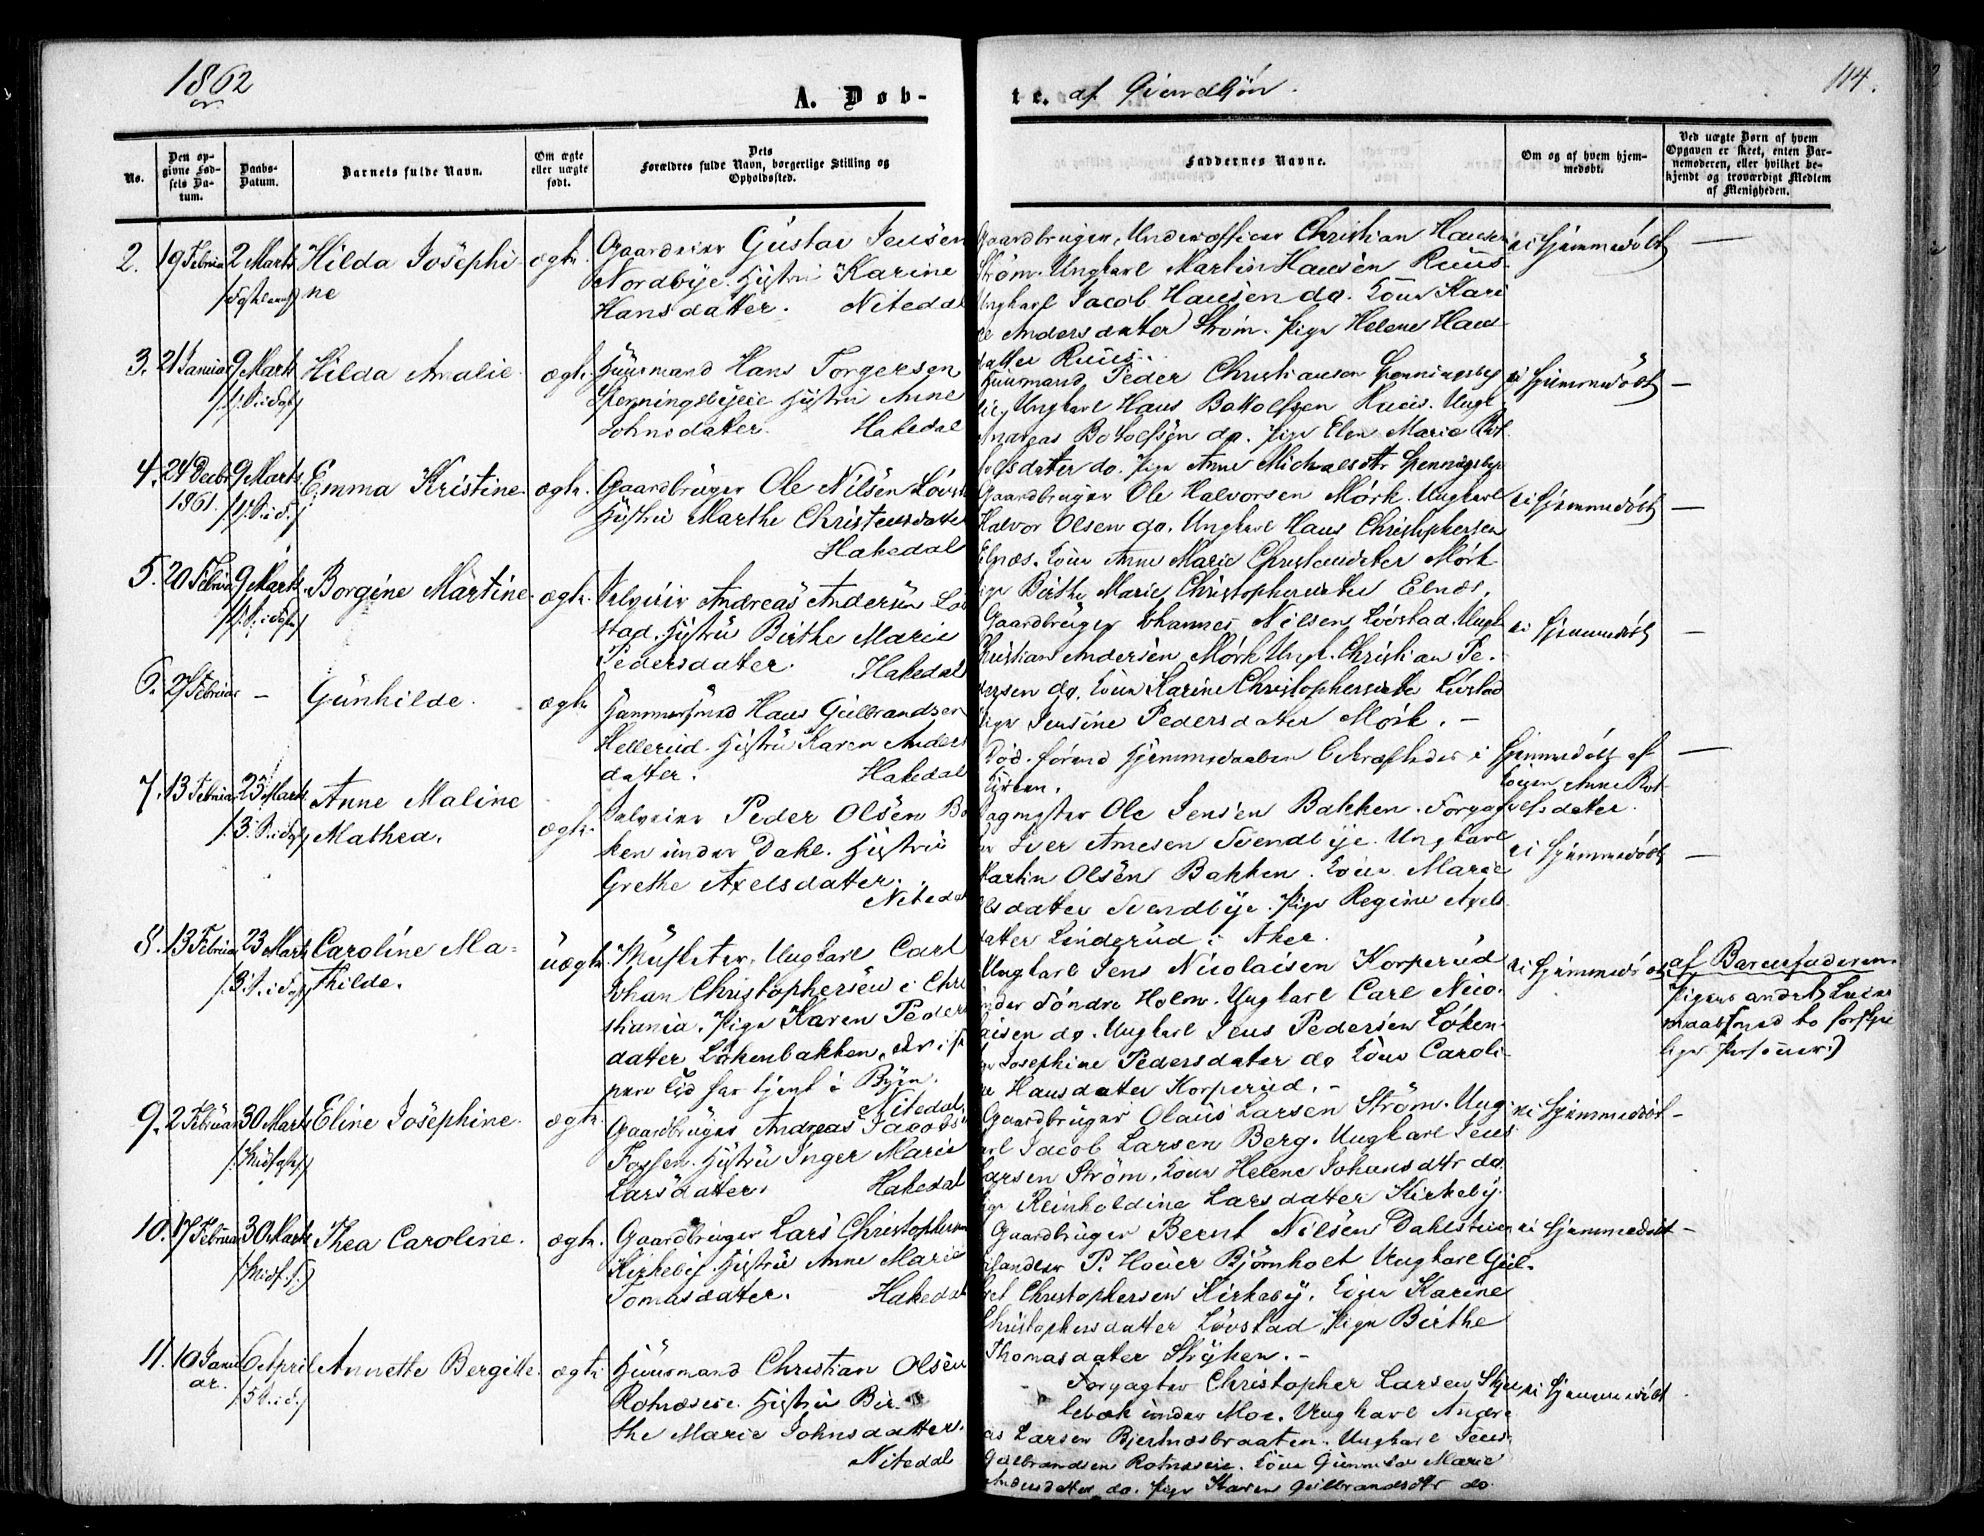 1862
A. Døb-
te. af Qvindkjøn.
114.
No.
Den op-
givne Fød-
sels Da-
tum.
Daabs-
Datum.
Barnets fulde Navn.
Om ægte
eller uægte
født.
Dets
Forældres fulde Navn, borgerlige Stilling og
Opholdssted.
Faddernes Navne.
Om og af hvem hjem-
medøbt.
Ved uægte Børn af hvem
Opgaven er skeet, enten Bar-
nemoderen, eller hvilket be-
kjendt og troværdigt Medlem
af Menigheden.
2. 19 Februar 2 Marts Hilda Josephi-
ne
ægte.
Gaardeier Gustav Jensen
Nordbye. Hustru Karine
Hansdatter. Nitedal
Gaardbruger, Underofficer Christian Hansen
Strøm. Ungkarl Martin Hansen Ruus.
Ungkarl Jacob Hansen do. Kone Kari
Andersdatter Strøm. Pige Helene Hans-
datter Ruus.
ei hjemmedøbt —
3. 21 Januar 9 Marts Hilda Amalie.
ægte.
Huusmand Hans Torgersen
Spenningsbyeie Hustru Anne
Johnsdatter. Hakedal
Huusmand Peder Christiansen Spenningsby
eie, Ungkarl Hans Bottolfsen Ruus. Ungk.
Andreas Bottolfsen do. Pige Elen Marie Bot-
tolfsdatter do. Pige Anne Michaelsdtr Spenningsbye
ei hjemmedøbt —
4. 24 Decbr 1861. 9 Marts Emma Kristine.
ægte.
Gaardbruger Ole Nilsen Løvstad
Hustru Marthe Christensdatter
Hakedal
Gaardbruger Ole Halvorsen Mørk. Ungkarl
Halvor Olsen do. Ungkarl Hans Christophersen
Elnæs. Kone Anne Marie Christensdatter Mørk
Pige Birthe Marie Christophersdatter Elnæs.
ei hjemmedøbt —
5. 20 Februar 9 Marts Borgine Martine.
ægte.
Selveier Andreas Andersen Løv-
stad. Hustru Birthe Marie
Pedersdatter. Hakedal
Gaardbruger Johannes Nilsen Løvstad. Ungk.
Christian Andersen Mørk Ungk. Christian Pe-
dersen do. Kone Karine Christophersdatter Løvstad
Pige Jensine Pedersdatter Mørk. —
ei hjemmedøbt —
6. 27 Februar — Gunhilde.
ægte
Hammersmed Hans Gulbrandsen
Hellerud. Hustru Karen Anders-
datter. Hakedal
Død førend Hjemmedaaben bekræftedes i
Kirken.
Hjemmedøbt af
Konen Anne Bot-
tolfsdatter. —
7. 13 Februar 23 Marts Anne Maline
Mathea.
ægte.
Selveier Peder Olsen Bak-
ken under Dahl. Hustru
Grethe Axelsdatter.
Nitedal
Ole Jensen Bakken. Forpag-
ter Iver Arnesen Svendbye. Ungkarl
Martin Olsen Bakken. Kone Marie
Olsdatter Svendbye. Pige Regine Axels-
datter Linderud i Aker.
ei hjemmedøbt —
8. 13 Februar 23 Marts Caroline Ma-
thilde.
uægte.
Musketer, Ungkarl Carl
Johan Christophersen i Chri-
stiania. Pige Karen Peders-
datter Løkenbakken, der i
pere Tid har tjent i Byen.
Nitedal.
Ungkarl Jens Nicolaisen Korperud
under Søndre Holm. Ungkarl Carl Nico-
laisen do. Ungkarl Jens Pedersen Løken-
Josephine Pedersdatter do Kone Caroli-
ne Hansdatter Korperud. —
ei hjemmedøbt
af Barnefaderen.
Pigens andet Leier-
maal med to forskjel-
lige Personer.
9. 2 Februar 30 Marts Eline Josephine.
ægte.
Gaardbruger Andreas Jacobsen
Fossen. Hustru Inger Marie
Larsdatter. Hakedal
Gaardbruger Olaus Larsen Strøm. Ung-
karl Jacob Larsen Berg. Ungkarl Jens
Larsen Strøm. Kone Helene Johansdtr do.
Pige Reinholdine Larsdatter Kirkeby.
ei hjemmedøbt —
10. 17 Februar 30 Marts Thea Caroline.
ægte.
Gaardbruger Lars Christophersen
Kirkeby. Hustru Anne Marie
Tomasdatter. Hakedal
Gaardbruger Bernt Nilsen Dahlstuen
P. Houer Bjørnholt Ungkarl Gul-
Christophersen Kirkeby. Kone Karine
Christophersdatter Løvstad Pige Birthe
Thomasdatter Stryken. —
ei hjemmedøbt —
11. 10 Janu-
ar. 6 April Annette Bergitte.
ægte.
Huusmand Christian Olsen
Rotnæseie. Hustru Bir-
the Marie Johnsdatter.
Nitedal
Forpagter Christopher Larsen Skyt-
lebæk under Moe. Ungkarl Andre-
as Larsen Bjertnæsbraaten. Ungkarl Jens
Gulbrandsen Rotnæseie. Kone Gunnhil Marie
Andersdatter do. Pige Karen Gulbrandsdtr do.
ei hjemmedøbt.